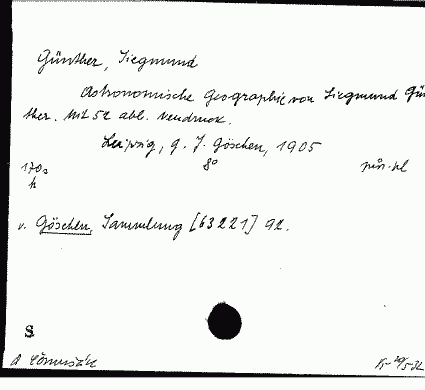 Günther, Siegmund
Astronomische Geographie von Siegmund Gün
ther. Mit 52 abb. Neudruck.
Leipzig, G. J. Göschen, 1905
170 s 8°
v. Göschen, Sammlung [63221] 92.
S